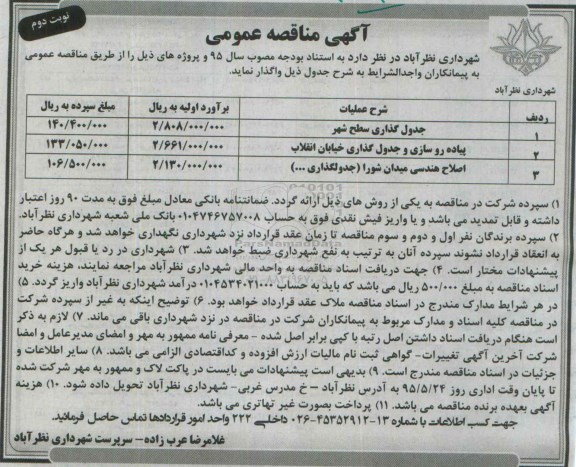 نوبت دوم
آگهی مناقصه عمومی
شهرداری نظرآباد در نظر دارد به استناد بودجه مصوب سال ۹۵ و پروژه های ذیل را از طریق مناقصه عمومی
به پیمانکاران واجدالشرایط به شرح جدول ذیل واگذار نماید.
شهرداری نظرآباد
ردیف شرح عملیات برآورد اولیه به ریال مبلغ سپرده به ریال
۱ جدول گذاری سطح شهر ۲/۸۰۸/۰۰۰/۰۰۰ ۱۴۰/۴۰۰/۰۰۰
۲ پیاده رو سازی و جدول گذاری خیابان انقلاب ۲/۶۶۱/۰۰۰/۰۰۰ ۱۳۳/۰۵۰/۰۰۰
۳ اصلاح هندسی میدان شورا (جدولگذاری ...) ۲/۱۳۰/۰۰۰/۰۰۰ ۱۰۶/۵۰۰/۰۰۰
۱) سپرده شرکت در مناقصه به یکی از روش های ذیل ارائه گردد. ضمانتنامه بانکی معادل مبلغ فوق به مدت ۹۰ روز اعتبار
داشته و قابل تمدید می باشد و یا واریز فیش نقدی فوق به حساب ۰۱۰۴۷۴۶۷۵۷۰۰۸ بانک ملی شعبه شهرداری نظرآباد.
۲) سپرده برندگان نفر اول و دوم و سوم مناقصه تا زمان عقد قرارداد نزد شهرداری نگهداری خواهد شد و هرگاه حاضر
به انعقاد قرارداد نشوند سپرده آنان به ترتیب به نفع شهرداری ضبط خواهد شد. ۳) شهرداری در رد یا قبول هر یک از
پیشنهادات مختار است. ۴) جهت دریافت اسناد مناقصه به واحد مالی شهرداری نظرآباد مراجعه نمایند، هزینه خرید
اسناد مناقصه به مبلغ ۵۰۰/۰۰۰ ریال می باشد که باید به حساب ۰۱۰۴۵۳۴۰۲۱۰۰۰ درآمد شهرداری نظرآباد واریز گردد. ۵)
در هر شرایط مدارک مندرج در اسناد مناقصه ملاک عقد قرارداد خواهد بود. ۶) توضیح اینکه به غیر از سپرده شرکت
در مناقصه کلیه اسناد و مدارک مربوط به پیمانکاران شرکت در مناقصه در نزد شهرداری باقی می ماند. ۷) لازم به ذکر
است هنگام دریافت اسناد داشتن اصل رتبه با کپی برابر اصل شده - معرفی نامه ممهور به مهر و امضای مدیرعامل و امضا
شرکت آخرین آگهی تغییرات- گواهی ثبت نام مالیات ارزش افزوده و کداقتصادی الزامی می باشد. ۸) سایر اطلاعات و
جزئیات در اسناد مناقصه مندرج است. ۹) بدیهی است پیشنهادات می بایست در پاکت لاک و ممهور به مهر شرکت شده
تا پایان وقت اداری روز ۹۵/۵/۲۴ به آدرس نظرآباد – خ مدرس غربی- شهرداری نظرآباد تحویل داده شود. ۱۰) هزینه
آگهی بعهده برنده مناقصه می باشد. ۱۱) پرداخت بصورت غیر تهاتری می باشد.
جهت کسب اطلاعات با شماره ۱۳-۰۲۶-۴۵۳۵۲۹۱۲ داخلی ۲۲۲ واحد امور قراردادها تماس حاصل فرمائید.
غلامرضا عرب زاده- سرپرست شهرداری نظرآباد